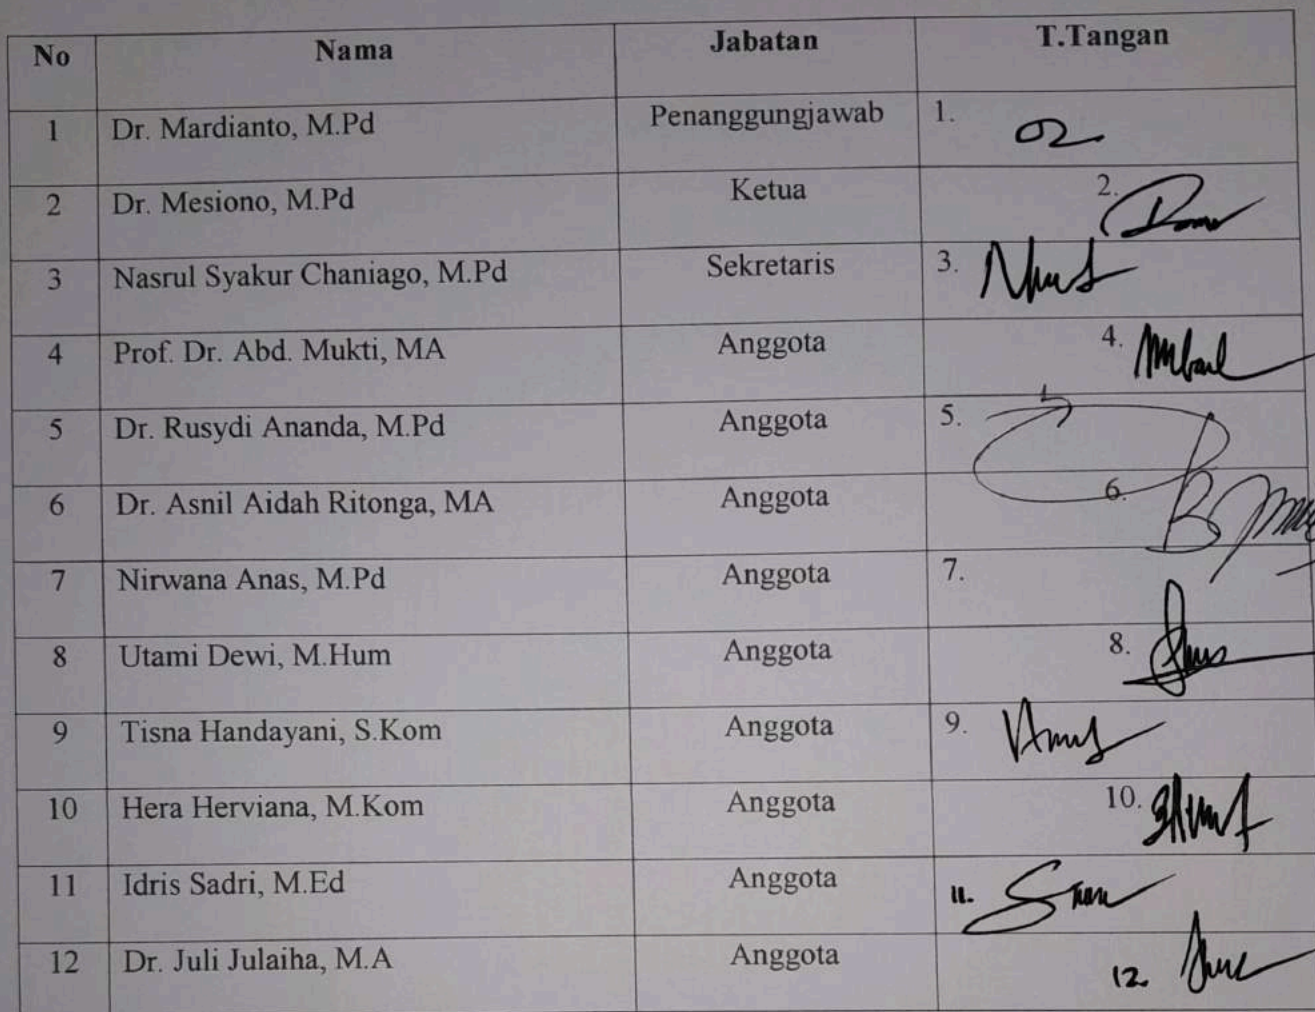 No Nama Jabatan T.Tangan
1 Dr. Mardianto, M.Pd Penanggungjawab 1.
2 Dr. Mesiono, M.Pd Ketua 2.
3 Nasrul Syakur Chaniago, M.Pd Sekretaris 3.
4 Prof. Dr. Abd. Mukti, MA Anggota 4.
5 Dr. Rusydi Ananda, M.Pd Anggota 5.
6 Dr. Asnil Aidah Ritonga, MA Anggota 6.
7 Nirwana Anas, M.Pd Anggota 7.
8 Utami Dewi, M.Hum Anggota 8.
9 Tisna Handayani, S.Kom Anggota 9.
10 Hera Herviana, M.Kom Anggota 10.
11 Idris Sadri, M.Ed Anggota 11.
12 Dr. Juli Julaiha, M.A Anggota 12.